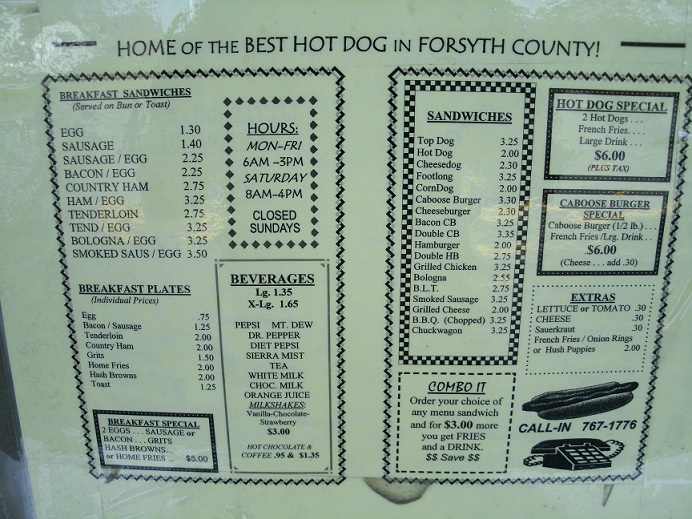 HOME OF THE BEST HOT DOG IN FORSYTH COUNTY!
BREAKFAST SANDWICHES
(Served on Bun or Toast)
EGG 1.30
SAUSAGE 1.40
SAUSAGE / EGG 2.25
BACON / EGG 2.25
COUNTRY HAM 2.75
HAM / EGG 3.25
TENDERLOIN 2.75
TEND / EGG 3.25
BOLOGNA / EGG 3.25
SMOKED SAUS / EGG 3.50
BREAKFAST PLATES
(Individual Prices)
Egg .75
Bacon / Sausage 1.25
Tenderloin 2.00
Country Ham 2.00
Grits 1.50
Home Fries 2.00
Hash Browns 2.00
Toast 1.25
BREAKFAST SPECIAL
2 EGGS . . . SAUSAGE or
BACON . . . GRITS
HASH BROWNS...
or HOME FRIES ... $5.00
HOURS:
MON-FRI
6AM -3PM
SATURDAY
8AM-4PM
CLOSED
SUNDAYS
BEVERAGES
Lg. 1.35
X-Lg. 1.65
PEPSI MT. DEW
DR. PEPPER
DIET PEPSI
SIERRA MIST
TEA
WHITE MILK
CHOC. MILK
ORANGE JUICE
MILKSHAKES:
Vanilla-Chocolate-
Strawberry
$3.00
HOT CHOCOLATE &
COFFEE .95 & $1.35
SANDWICHES
Top Dog 3.25
Hot Dog 2.00
Cheesedog 2.30
Footlong 3.25
CornDog 2.00
Caboose Burger 3.30
Cheeseburger 2.30
Bacon CB 3.25
Double CB 3.35
Hamburger 2.00
Double HB 2.75
Grilled Chicken 3.25
Bologna 2.55
B.L.T. 2.75
Smoked Sausage 3.25
Grilled Cheese 2.00
B.B.Q. (Chopped) 3.25
Chuckwagon 3.25
COMBO IT
Order your choice of
any menu sandwich
and for $3.00 more
you get FRIES
and a DRINK.
$$ Save $$
HOT DOG SPECIAL
2 Hot Dogs . . .
French Fries. . . .
Large Drink . . .
$6.00
(PLUS TAX)
CABOOSE BURGER
SPECIAL
Caboose Burger (1/2 lb.) . . .
French Fries /Lrg. Drink . .
.$6.00
(Cheese . . add .30)
EXTRAS
LETTUCE or TOMATO .30
CHEESE .30
Sauerkraut .30
French Fries / Onion Rings
or Hush Puppies 2.00
CALL-IN 767-1776